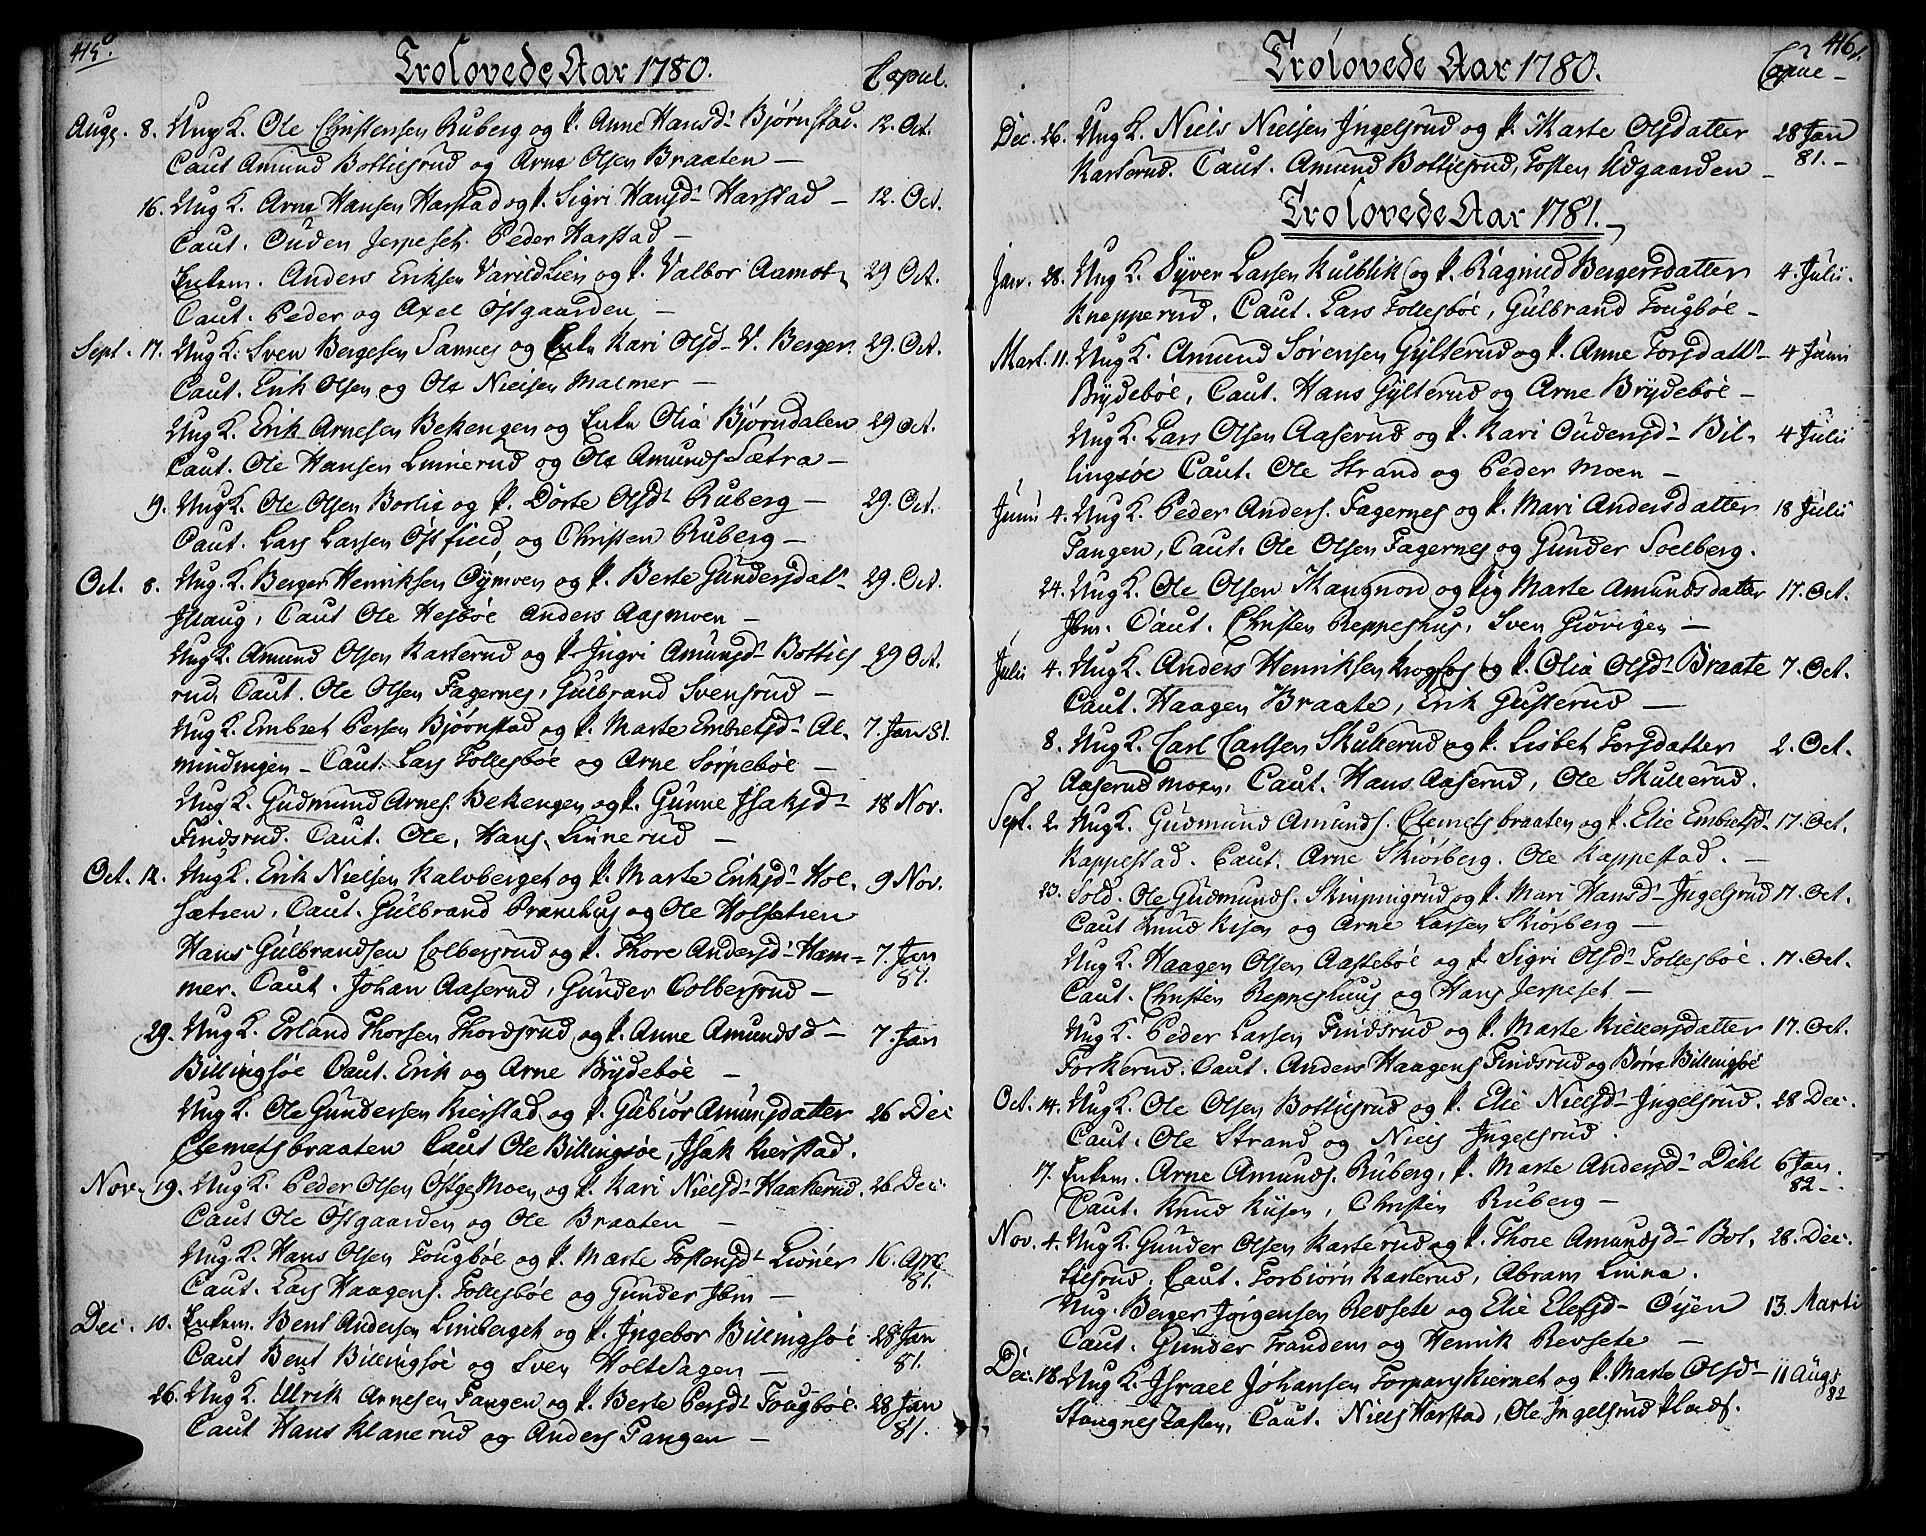 415.
Trolovede Aar 1780.
Copul.
Aug. 8. Ung K. Ole Christensen Ruberg og P. Anne Hansd. Bjørnstad. 12. Oct.
Caut Amund Bottilsrud og Arne Olsen Braaten —
16. Ung K. Arne Hansen Harstad og P. Sigri Hansd. Harstad — 12. Oct.
Caut. Ouden Jerpeset. Peder Harstad —
Enkem. Anders Eriksen Varildlien og P. Valbor Aamot 29 Oct.
Caut. Peder og Axel Ostgaarden —
Sept. 17. Ung K. Sven Bergesen Sannes og Enke Kari Olsd. V. Berger. 29. Oct.
Caut. Erik Olsen og Ole Nielsen Malmer —
Ung K. Erik Arnesen Bekengen og Enke Olia Bjørndalen 29 Oct.
Caut. Ole Hansen Linnerud og Ole Amunds. Sætra —
19. Ung K. Ole Olsen Borlie og P. Dorte Olsd. Ruberg — 29. Oct.
Caut. Lars Larsen Østfield, og Christen Ruberg —
Oct. 8. Ung K. Berger Henriksen Oymoen og P. Berte Gundersdatr. 29. Oct.
Ihaug, Caut Ole Hesbøe Anders Aasmoen —
Ung K. Amund Olsen Karterud og P. Ingri Amunds. Bottils 29 Oct.
rud. Caut. Ole Olsen Fagernes, Gulbrand Svensrud —
Ung K. Embret Persen Bjørnstad og P. Marte Embretsd. Al, 7. Jan 81.
mindingen — Caut. Lars Follesbøe og Arne Sørpebøe —
Ung K. Gudmund Arnes. Bekengen og P. Gunne Isaksd. 18 Nov.
Findsrud. Caut. Ole, Hans, Linnerud —
Oct. 12. Ung K. Erik Nielsen Kalvberget og P. Marte Eriksd. Hol, 9 Nov.
sætren, Caut. Gulbrand Pramhus og Ole Holsetren
Hans Gulbrandsen Colbersrud og P. Thore Andersd. Ham= 7. Jan
mer. Caut. Johan Aaserud, Gunder Colbersrud — 81.
29. Ung K. Erland Thorsen Thordsrud og P. Anne Amundsd. 7. Jan
Billingsøe Caut. Erik og Arne Brydebøe —
Ung K. Ole Gundersen Kierstad og P. Gubiør Amundsdatter 26 Dec
Clemetsbraaten Caut Ole Billingsøe, Isak Kierstad.
Nov. 19. Ung K. Peder Olsen Østge Moen og P. Kari Nielsd. Haakerud. 26 Dec.
Caut Ole Ostgaarden og Ole Braaten —
Ung K. Hans Olsen Fougbøe og P. Marte Tostensd. Lioner 16. Apr.
Caut. Lars Haagens. Follesbøe og Gunder Ibm — 81.
Dec. 10. Enkem. Bent Andersen Linberget og P. Ingebor Billingsøe 28 Jan
Caut Bent Billingsøe og Sven Holthagen — 81.
26. Ung K. Ulrik Arnesen Tangen og P. Berte Persd. Fougbøe. 28 Jan
Caut Hans Klanerud og Anders Tangen — 81.
416.
Trolovede Aar 1780.
Copul —
Dec. 26. Ung K. Niels Nielsen Ingelsrud og P. Marte Olsdatter 28 Jan
Karterud. Caut. Amund Bottilsrud, Tosten Udgaarden — 81. —
Trolovede Aar 1781.
Jan. 28. Ung K. Syver Larsen Kulblik og P. Ragnild Bergersdatter 4. Julii.
Knepperud, Caut. Lars Follesbøe, Gulbrand Fougbøe —
Mart. 11. Ung K. Amund Sørensen Gylterud og P. Anne Torsdatt. 4 Juni
Brydebøe, Caut. Hans Gylterud og Arne Brydebøe —
Ung K. Lars Olsen Aaserud og P. Kari Oudensd. Bil, 4 Julii
lingsøe Caut. Ole Strand og Peder Moen —
Junii 4. Ung K. Peder Anders. Fagernes og P. Mari Andersdatter 18 Julii
Tangen, Caut. Ole Olsen Fagernes og Gunder Soelberg.
24. Ung K. Ole Olsen Mangnord og Pig Marte Amundsdatter 17. Oct.
Ibm. Caut. Christen Reppeshus, Sven Giøvigen —
Julii 4. Ung K. Anders Henriksen Krogfos og P. Olia Olsd. Braate 7. Oct.
Caut. Haagen Braate, Erik Gusterud —
8. Ung K. Carl Carlsen Skullerud og P. Lisbet Torsdatter 2. Oct.
Aaserudmoen, Caut. Hans Aaserud, Ole Skullerud.
Sept. 2. Ung K. Gudmund Amunds. Clemetsbraaten og P. Elie Embretsd. 17. Oct.
Kappestad. Caut. Arne Skiørberg. Ole Kappestad. —
23. Sold. Ole Gudmunds. Skinpingrud og P. Mari Hansd. Ingelsrud 17. Oct.
Caut Knud Kisen og Arne Larsen Skiørberg —
Ung K. Haagen Olsen Aastebøe og P. Sigri Olsd. Follesbøe. 17. Oct.
Caut. Christen Reppeshuus og Hans Jerpeset —
Ung K. Peder Larsen Findsrud og P. Marte Killersdatter 17. Oct.
Torkerud. Caut. Anders Haagens Findsrud og Børe Billingsøe
Oct. 14. Ung K. Ole Olsen Bottilsrud og P. Elie Nielsd. Ingelsrud. 28 Dec.
Caut. Ole Strand og Niels Ingelsrud.
17. Enkem. Arne Amunds. Ruberg, P. Marte Andersd. Dahl 6 Jan
Caut. Knud Kiisen, Christen Ruberg — 82 —.
Nov. 4. Ung K. Gunder Olsen Karterud og P. Thore Amundsd. Bot, 28. Dec.
tilsrud. Caut. Torbiørn Karterud, Abram Linna.
Ung. Berger Jørgensen Revsete og Elie Elefsd. Öyen 13. Marti
Caut. Gunder Frandem og Henrik Revsete —
Dec. 18. Ung K. Israel Johansen Torpars Kiernet og P. Marte Olsd. 11 Aug
Stangnes Zasten, Caut. Niels Harstad, Ole Ingelsrud Plads. 82